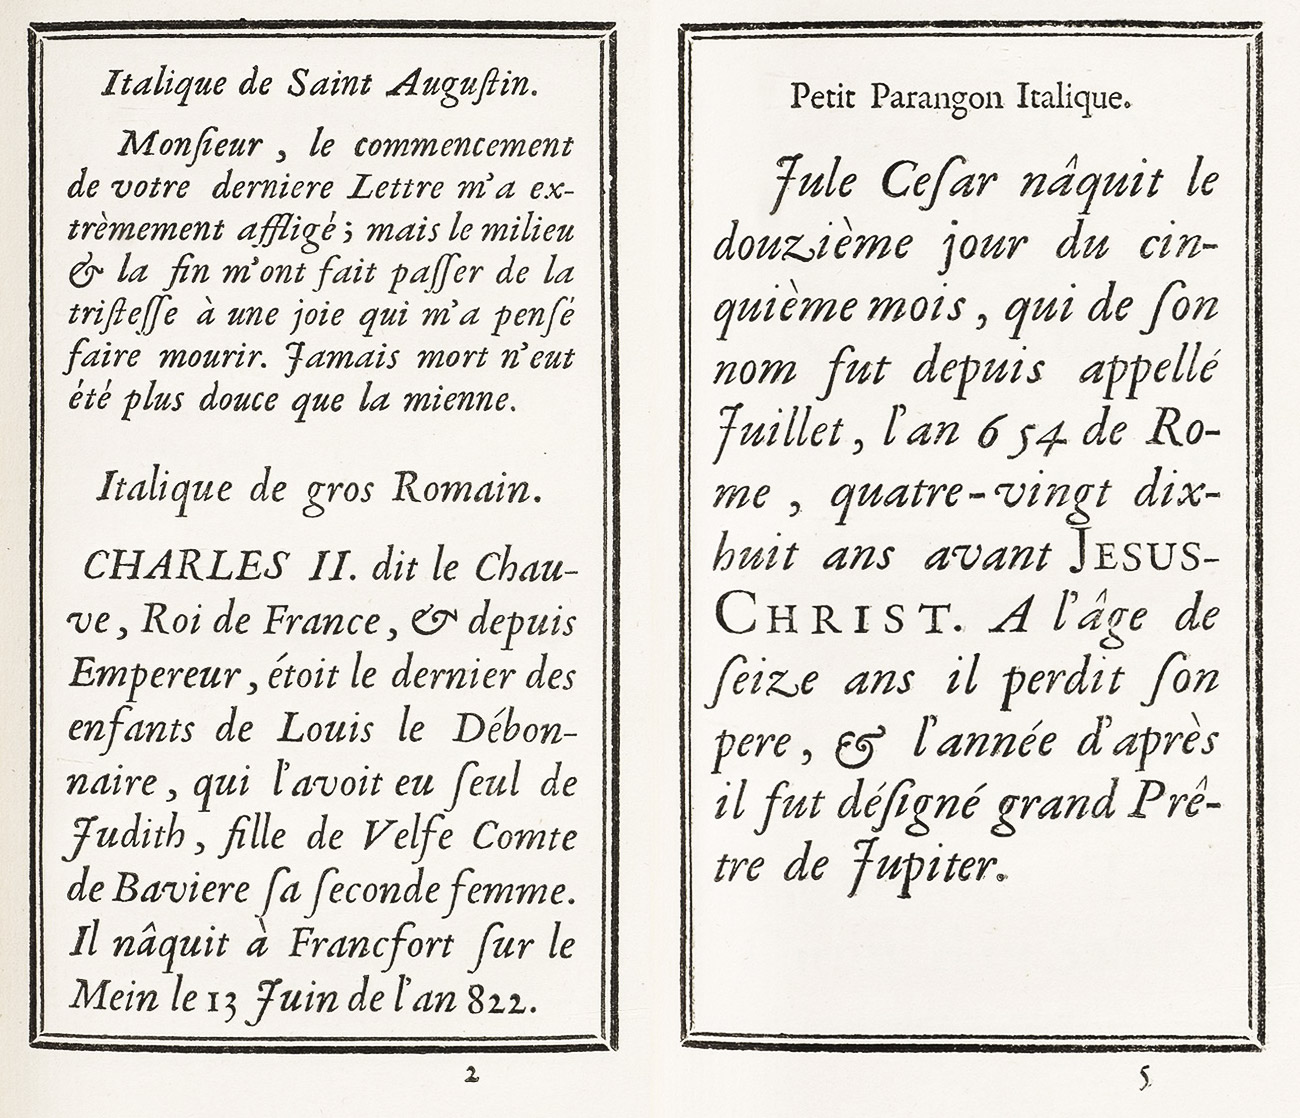 Italique de Saint Auguſtin.
Monſieur , le commencement
de votre derniere Lettre m'a ex-
trèmement affligé ; mais le milieu
& la fin m'ont fait paſſer de la
triſteſſe à une joie qui m'a penſé
faire mourir. Jamais mort n'eut
été plus douce que la mienne.
Italique de gros Romain.
CHARLES II. dit le Chau-
ve , Roi de France , & depuis
Empereur , étoit le dernier des
enfants de Louis le Débon-
naire , qui l'avoit eu ſeul de
Judith , fille de Velfe Comte
de Baviere ſa ſeconde femme.
Il nâquit à Francfort ſur le
Mein le 13 Juin de l'an 822.
2
Petit Parangon Italique.
Jule Ceſar nâquit le
douzième jour du cin-
quième mois , qui de ſon
nom fut depuis appellé
Juillet , l'an 654 de Ro-
me , quatre-vingt dix-
huit ans avant JESUS-
CHRIST. A l'âge de
ſeize ans il perdit ſon
pere , & l'année d'après
il fut déſigné grand Prê-
tre de Jupiter.
5